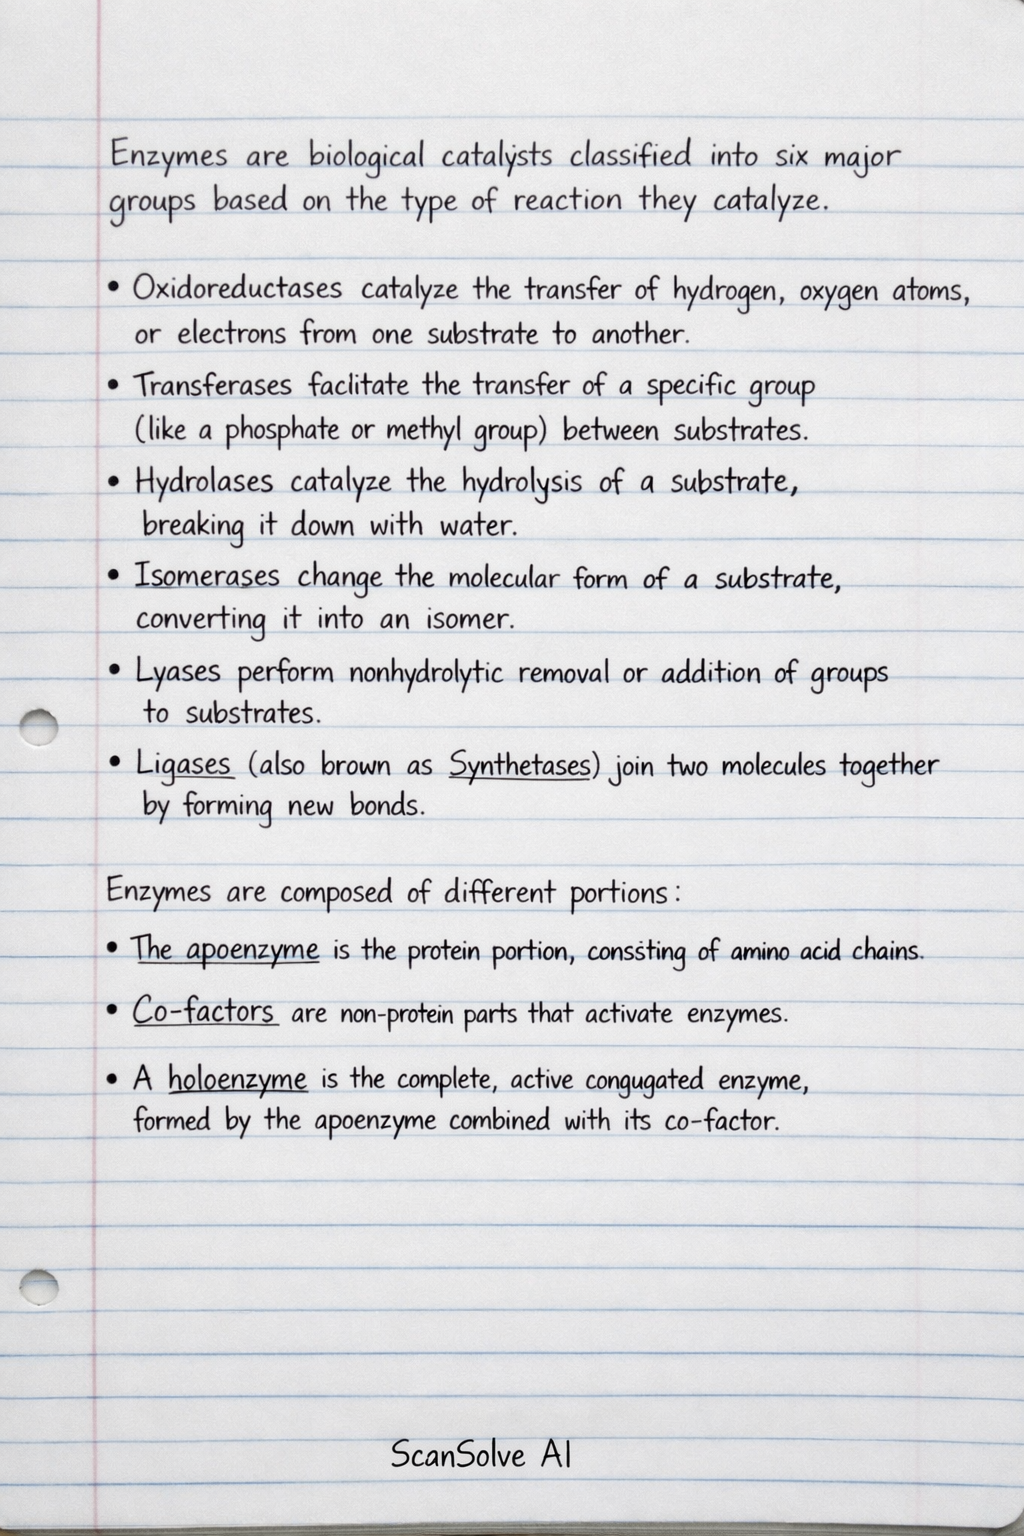 Enzymes are biological catalysts classified into six major
groups based on the type of reaction they catalyze.
• Oxidoreductases catalyze the transfer of hydrogen, oxygen atoms,
or electrons from one substrate to another.
• Transferases faclitate the transfer of a specific group
(like a phosphate or methyl group) between substrates.
• Hydrolases catalyze the hydrolysis of a substrate,
breaking it down with water.
• Isomerases change the molecular form of a substrate,
converting it into an isomer.
• Lyases perform nonhydrolytic removal or addition of groups
to substrates.
• Ligases (also brown as Synthetases) join two molecules together
by forming new bonds.
Enzymes are composed of different portions:
• The apoenzyme is the protein portion, conssting of amino acid chains.
• Co-factors are non-protein parts that activate enzymes.
• A holoenzyme is the complete, active congugated enzyme,
formed by the apoenzyme combined with its co-factor.
ScanSolve AI